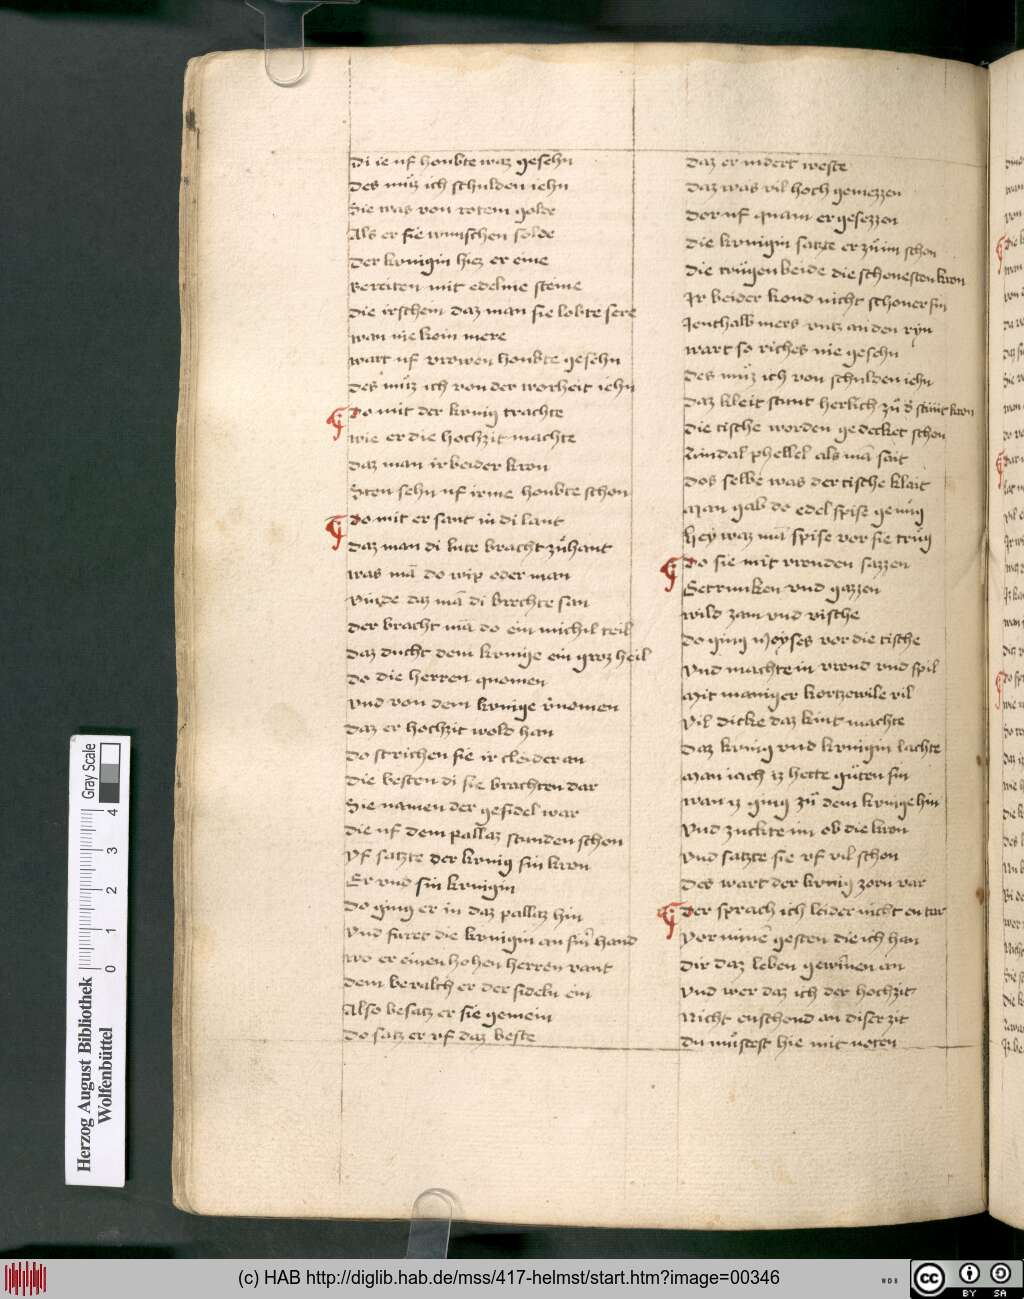 Di ie uf houbte waz gesehn
Des mu̓z ich schulden iehn
Sie was von rotem golde
Als er sie wunschen solde
Der kunigin hiez er eine
Bereiten mit edelme steine
Die irschein daz man sie lobte sere
wan nie kein mere
wart uf vrowen houbte gesehn
Des mu̓z ich von der worheit iehn
Do mit der kunig trachte
wie er die hochzit machte
Daz man ir beider kron
Sten sehn uf irme houbte schon
Do mit er sant in di lant
Daz man di lute bracht zu̓hant
was mā do wip oder man
vunde daz mā di brechte san
Der bracht mā do ein michil teil
Daz ducht dem kunige ein groz heil
Do die herren quomen
vnd von dem kunige v̓nomen
Daz er hochzit wold han
Do strichen sie ir cleider an
Die besten di sie brachten dar
Sie namen der gesidel war
Die uf dem pallaz stunden schon
Vf satzte der kunig sin kron
Er vnd sin kunigin
Do ging er in daz pallaz hin
Vnd furet die kunigin an sin̄ hand
wo er einen hohen herren vant
Dem bevalch er der sideln ein
Also besatz er sie gemein
Do satz er vf daz beste
Daz er indert weste
Daz was vil hoch gemezzen
Dor uf quam er gesezzen
Die kunigin satzte er zu̓ im schon
Die trugen beide die schonesten kron
Ir beider kond nicht schoner sin
Jenthalb mers vntz an den ryn
wart so riches nie gesehn
Des mu̓z ich von schulden iehn
Daz kleit stunt herlich zu̓ d̓ stunt kron
Die tische worden gedecket schon
Zindal phellel als mā sait
Dos selbe was der tische kleit
Man gab do edel spise genug
Hey waz mā spise vor sie trug
Do sie mit vreuden sazzen
Getrunken vnd gazzen
wild zam vnd vische
Do ging Moyses vor die tische
Vnd machte in vreud vnd spil
Mit maniger kortzewile vil
Vil dicke daz kint machte
Daz kunig vnd kunigin lachte
Man iach iz hette guten sin
wan iz ging zu̓ dem kunige hin
Vnd zuckte im ob die kron
Vnd satzte sie vf vil schon
Des wart der kunig zorn var
Der sprach ich leider nicht en tar
Vor minē gesten die ich han
Dir daz leben gewinnen an
Vnd wer daz ich der hochzit
Nicht enschond an diser zit
Du mu̓stest hie mit noten
Herzog August Bibliothek
Wolfenbüttel
0 1 2 3 4
Gray Scale
(c) HAB http://diglib.hab.de/mss/417-helmst/start.htm?image=00346
WDB
cc BY SA